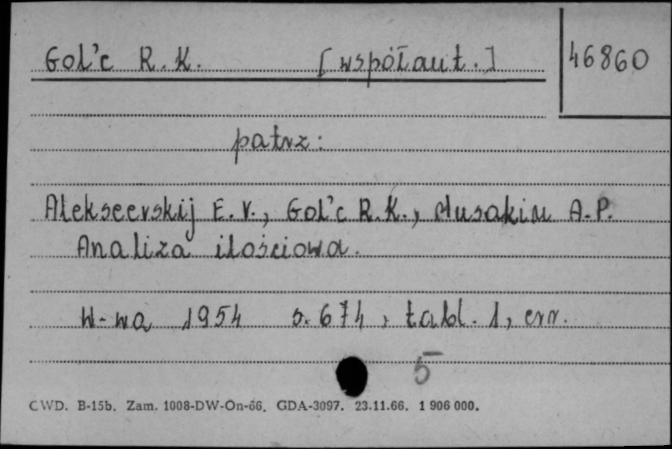 Gol'c R.K. [współaut.] 46860
patrz:
Alekseevskij E.V., Gol'c R.K., Musakin A.P.
Analiza ilościowa.
W-wa 1954 s. 674, tabl. 1, err.
5
CWD. B-15b. Zam. 1008-DW-On-66. GDA-3097. 23.11.66. 1 906 000.